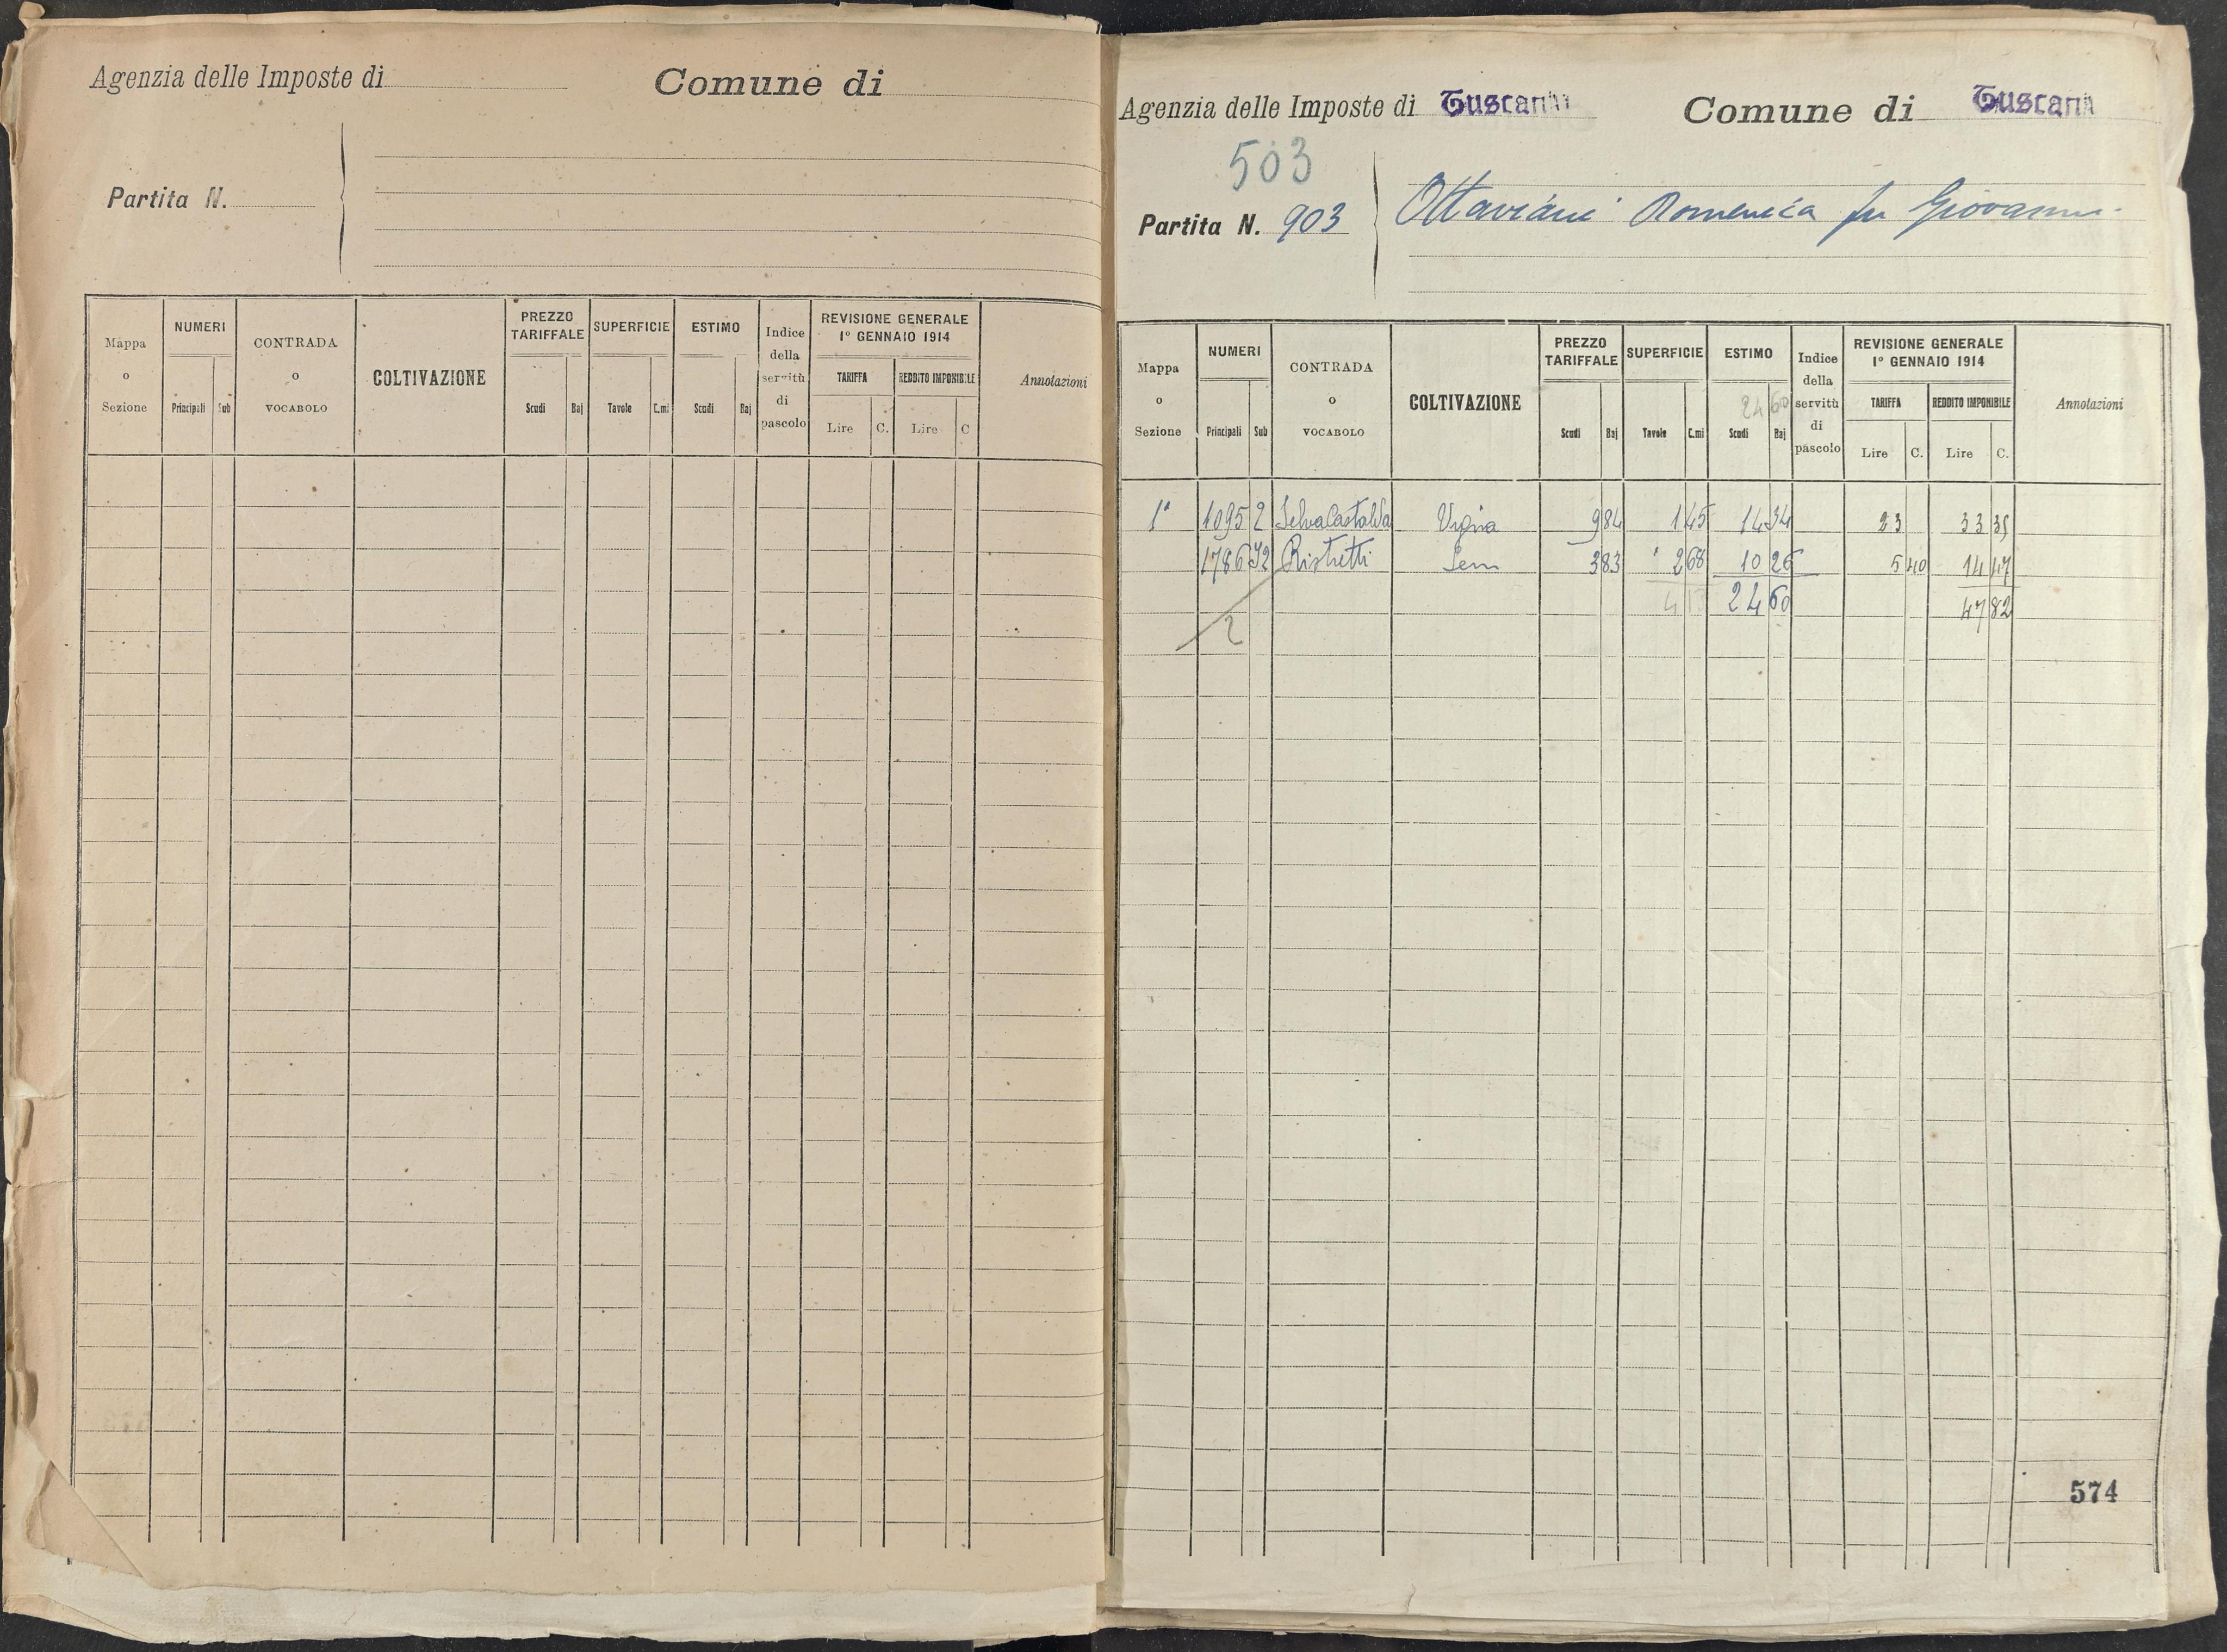 Agenzia delle Imposte di Comune di
Partita N.
Mappa o Sezione
NUMERI
Principali Sub
CONTRADA o VOCABOLO
COLTIVAZIONE
PREZZO TARIFFALE
Scudi Baj
SUPERFICIE
Tavole C.mi
ESTIMO
Scudi Baj
Indice della servitù di pascolo
REVISIONE GENERALE
1° GENNAIO 1914
TARIFFA
Lire C.
REDDITO IMPONIBILE
Lire C
Annotazioni
Agenzia delle Imposte di Tuscania Comune di Tuscania
503
Partita N. 903 Ottaviani Domenica fu Giovanni
Mappa o Sezione
NUMERI
Principali Sub
CONTRADA o VOCABOLO
COLTIVAZIONE
PREZZO TARIFFALE
Scudi Baj
SUPERFICIE
Tavole C.mi
ESTIMO
24 60
Scudi Baj
Indice della servitù di pascolo
REVISIONE GENERALE
1° GENNAIO 1914
TARIFFA
Lire C.
REDDITO IMPONIBILE
Lire C.
Annotazioni
1ª 1095 2 Selva Castalda Vigna 9 84 1 45 14 34 23 33 35
1786 Ristretti Sem 3 83 2 68 10 26 5 40 14 47
4 13 24 60 47 82
2
574